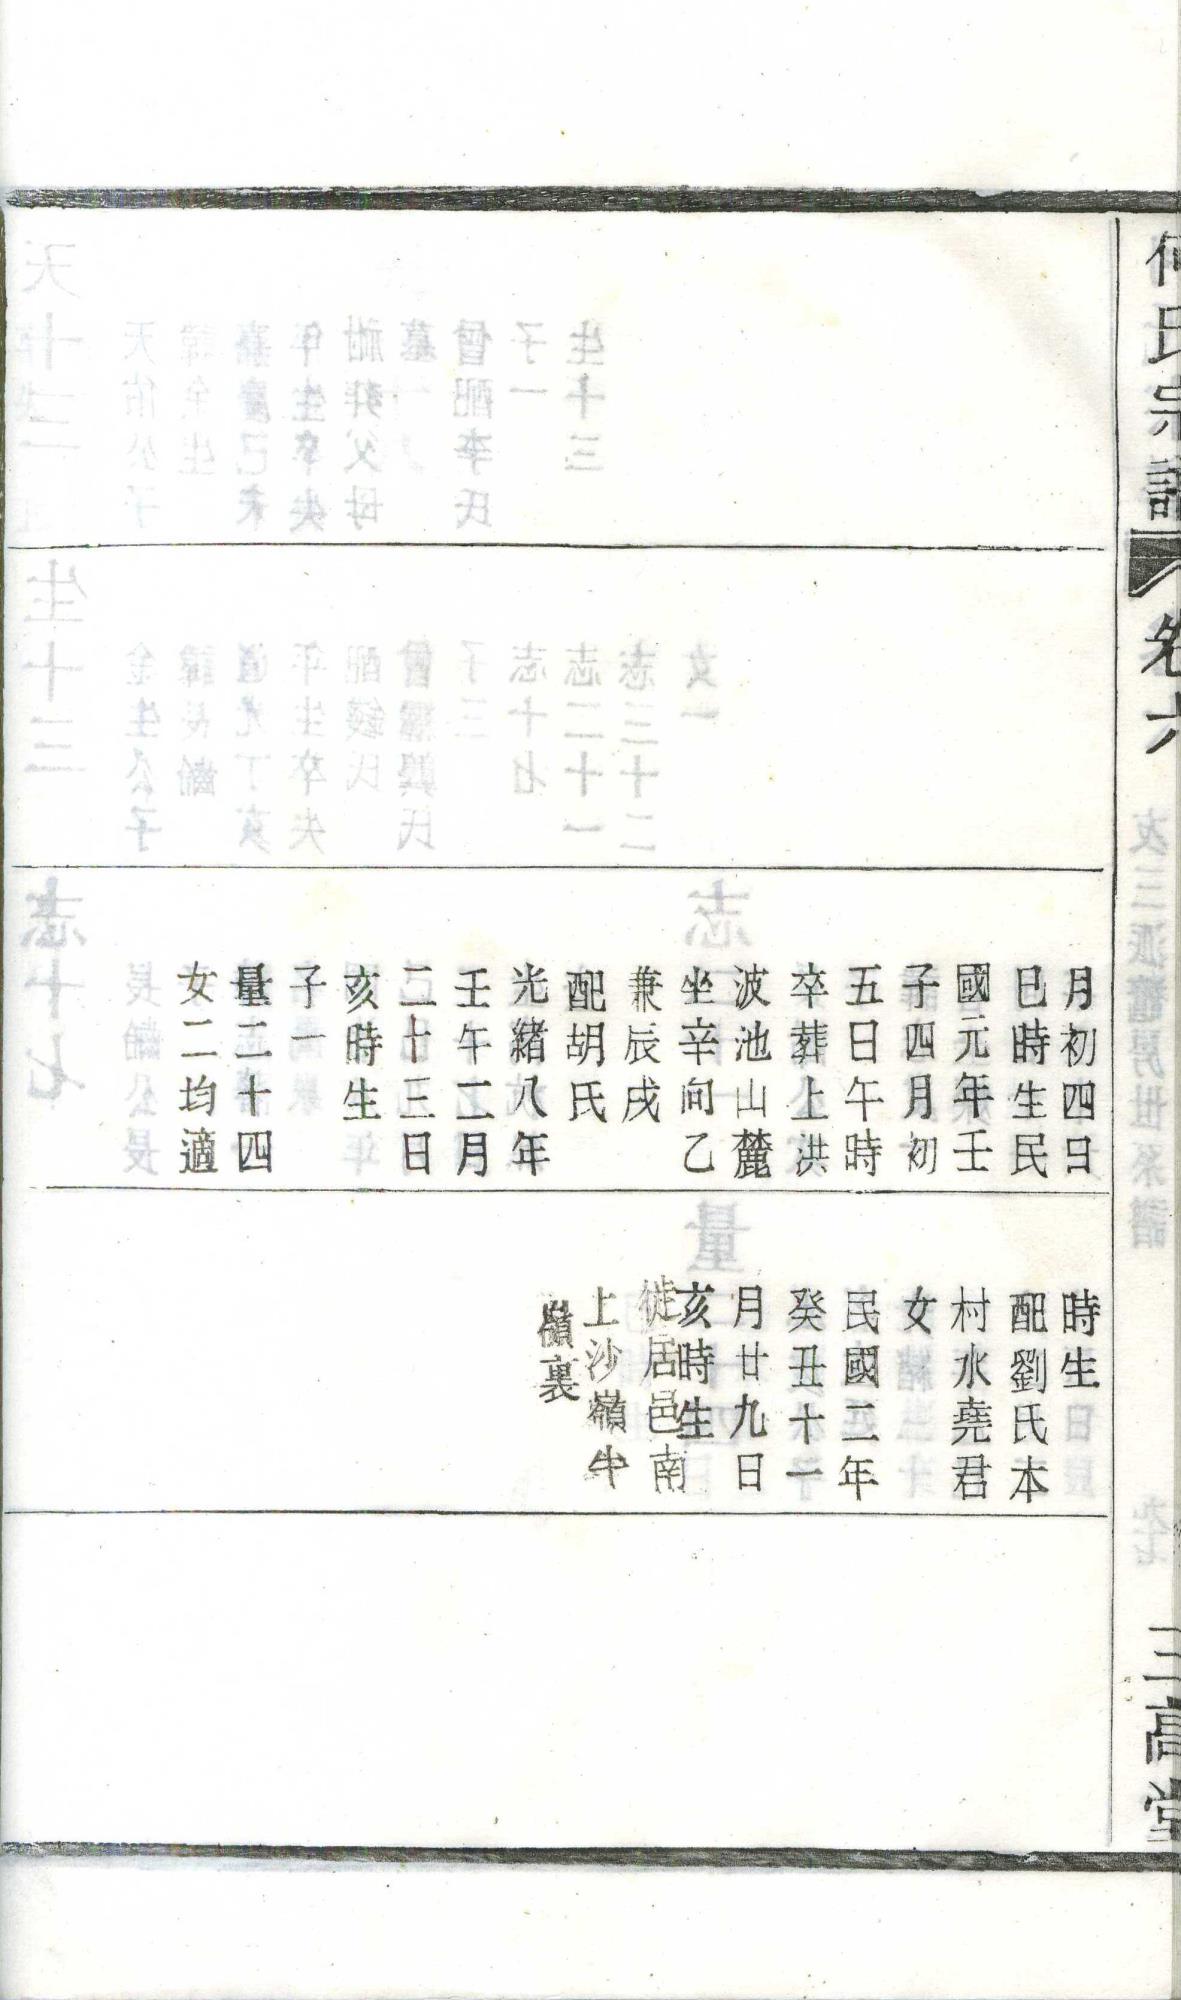 何氏宗譜
卷六
三高堂
月初四日
巳時生民
國元年壬
子四月初
五日午時
卒葬上洪
波池山麓
坐辛向乙
兼辰戌
配胡氏
光緒八年
壬午二月
二十三日
亥時生
子一
量二十四
女二均適
時生
配劉氏本
村水堯君
女
民國二年
癸丑十一
月廿九日
亥時生
徙居邑南
上沙嶺牛
嶺裏